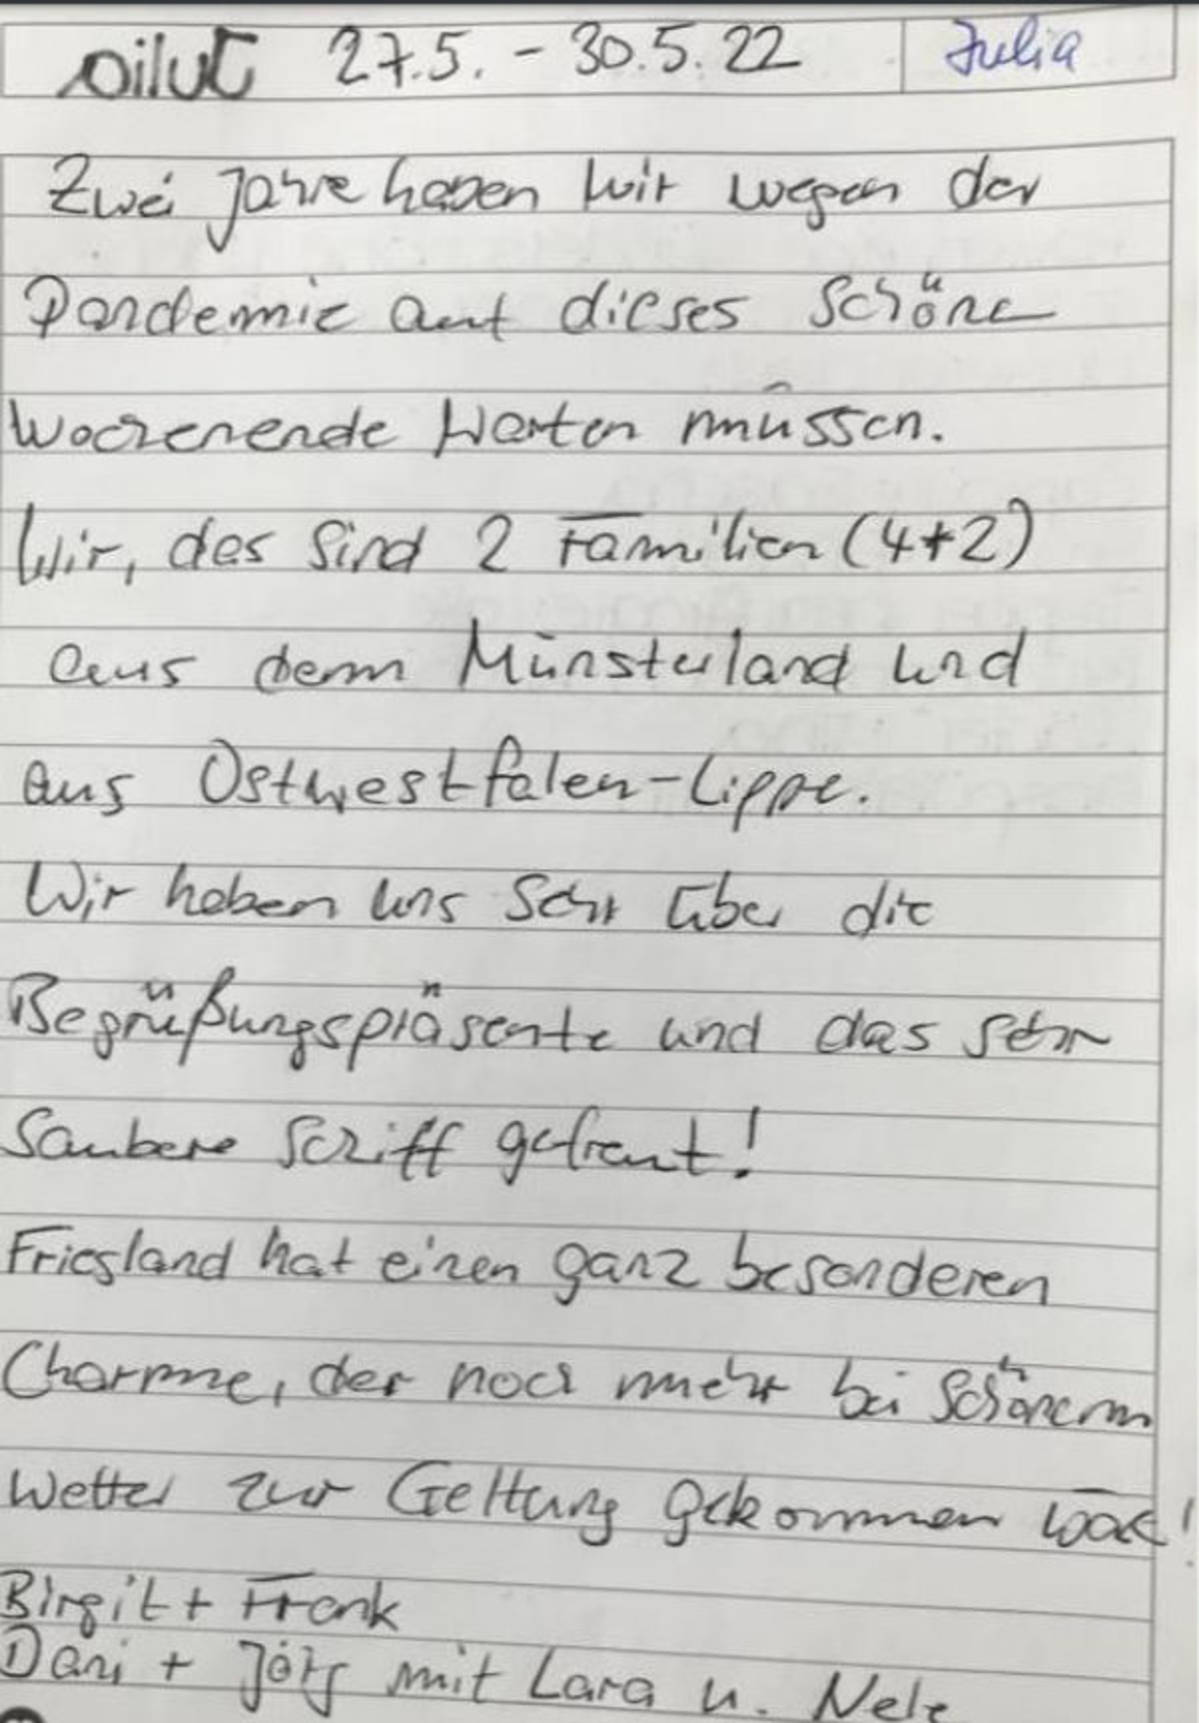 Pilut 27.5. - 30.5.22 Julia
Zwei Jahre haben wir wegen der
Pandemie auf dieses schöne
Wochenende warten müssen.
Wir, das sind 2 Familien (4+2)
aus dem Münsterland und
aus Ostwestfalen-Lippe.
Wir haben uns sehr über die
Begrüßungspräsente und das sehr
saubere Schiff gefreut!
Friesland hat einen ganz besonderen
Charme, der noch mehr bei schönerem
Wetter zur Geltung gekommen wäre!
Birgit + Frank
Dani + Jörg mit Lara u. Nele